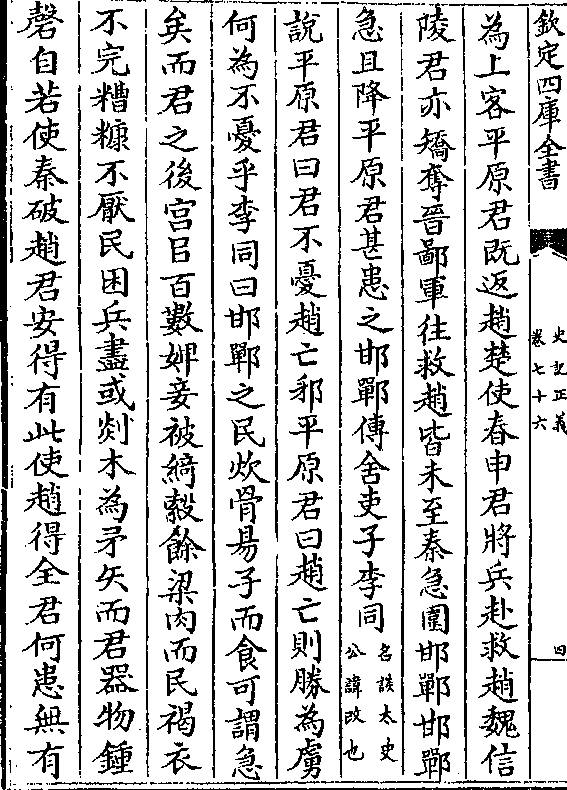 欽定四庫全書
史記正義
卷七十六
四
為上客平原君既返趙楚使春申君將兵赴救趙魏信
陵君亦矯奪晉鄙軍往救趙皆未至秦急圍邯鄲邯鄲
急且降平原君甚患之邯鄲傳舍吏子李同名談太史公諱改也
說平原君曰君不憂趙亡邪平原君曰趙亡則勝為虜
何為不憂乎李同曰邯鄲之民炊骨易子而食可謂急
矣而君之後宮以百數婢妾被綺縠餘粱肉而民褐衣
不完糟糠不厭民困兵盡或剡木為矛矢而君器物鍾
磬自若使秦破趙君安得有此使趙得全君何患無有